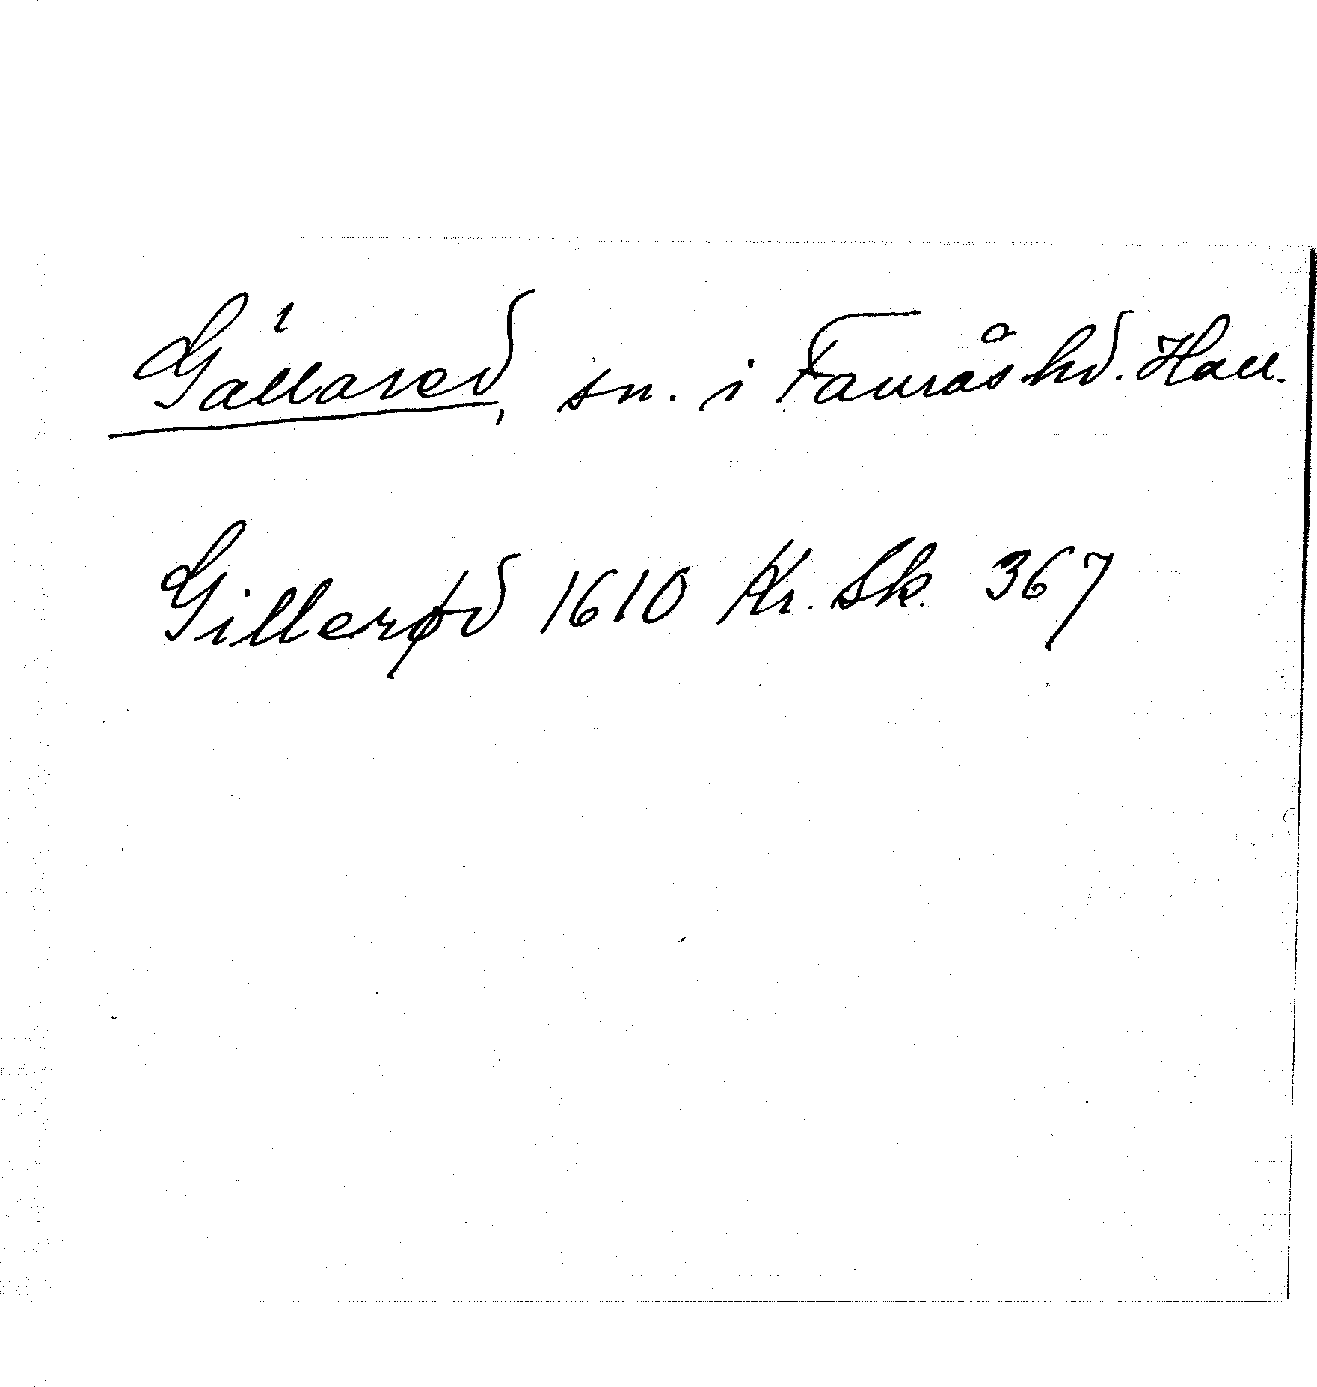 Gällared, sn. i Fauråshd. Hall.
Gillerød 1610 Kr. Sk. 367